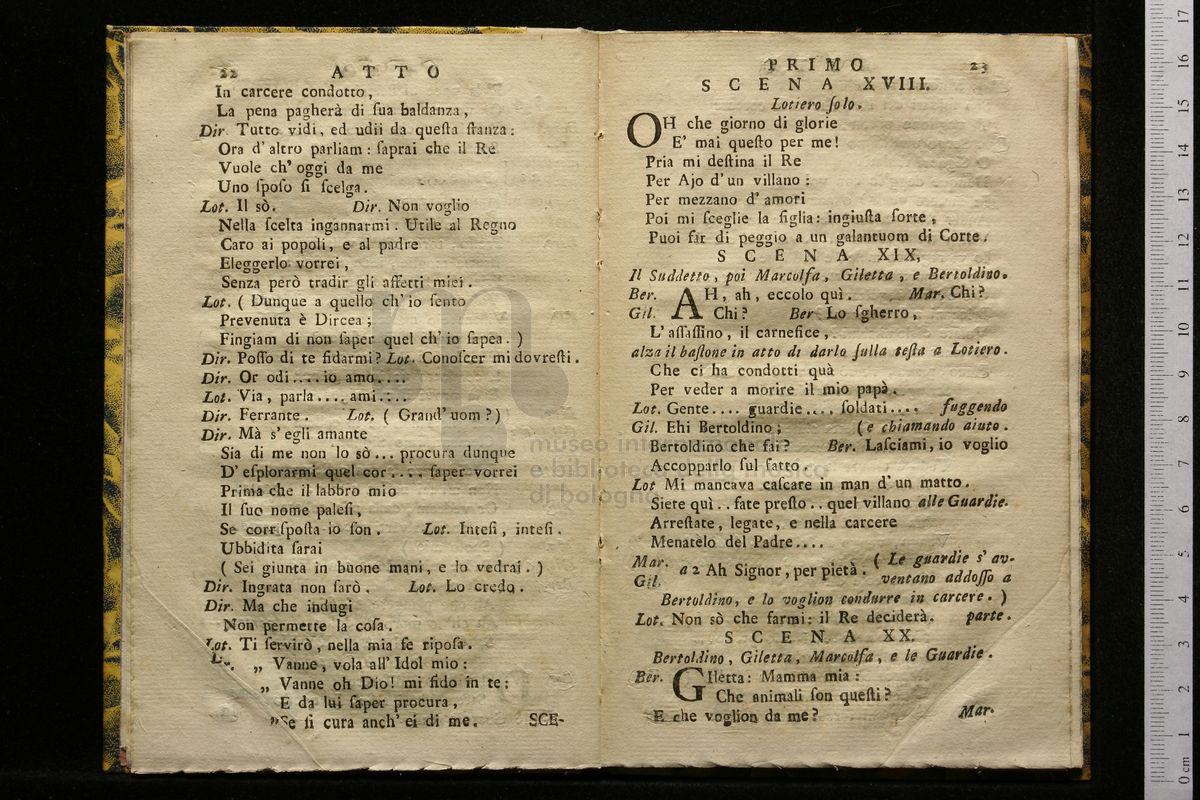 22 ATTO
In carcere condotto,
La pena pagherà di ſua baldanza,
Dir. Tutto vidi, ed udii da queſta ſtanza:
Ora d' altro parliam: ſaprai che il Re
Vuole ch' oggi da me
Uno ſpoſo ſi ſcelga.
Lot. Il sò. Dir. Non voglio
Nella ſcelta ingannarmi. Utile al Regno
Caro ai popoli, e al padre
Eleggerlo vorrei,
Senza però tradir gli affetti miei.
Lot. ( Dunque a quello ch' io ſento
Prevenuta è Dircea;
Fingiam di non ſaper quel ch' io ſapea. )
Dir. Poſſo di te fidarmi? Lot. Conoſcer mi dovreſti.
Dir. Or odi.... io amo....
Lot. Via, parla.... ami....
Dir. Ferrante. Lot. ( Grand' uom?)
Dir. Mà s' egli amante
Sia di me non lo sò... procura dunque
D' eſplorarmi quel cor.... ſaper vorrei
Prima che il labbro mio
Il ſuo nome paleſi,
Se corriſpoſta io ſon. Lot. Inteſi, inteſi.
Ubbidita ſarai
( Sei giunta in buone mani, e lo vedrai. )
Dir. Ingrata non ſarò. Lot. Lo credo.
Dir. Ma che indugi
Non permette la coſa.
Lot. Ti ſervirò, nella mia fe ripoſa.
„ Vanne, vola all' Idol mio:
„ Vanne oh Dio! mi fido in te:
E da lui ſaper procura,
„Se ſi cura anch' ei di me. SCE-
PRIMO 23
SCENA XVIII.
Lotiero ſolo.
OH che giorno di glorie
E' mai queſto per me!
Pria mi deſtina il Re
Per Ajo d' un villano:
Per mezzano d' amori
Poi mi ſceglie la figlia: ingiuſta ſorte,
Puoi far di peggio a un galantuom di Corte.
SCENA XIX,
Il Suddetto, poi Marcolfa, Giletta, e Bertoldino.
Ber. AH, ah, eccolo quì. Mar. Chi?
Gil. Chi? Ber Lo ſgherro,
L' aſſaſſino, il carnefice,
alza il baſtone in atto di darlo ſulla teſta a Lotiero.
Che ci ha condotti quà
Per veder a morire il mio papà.
Lot. Gente.... guardie.... ſoldati.... fuggendo
Gil. Ehi Bertoldino; (e chiamando aiuto.
Bertoldino che fai? Ber. Laſciami, io voglio
Accopparlo ſul fatto.
Lot Mi mancava caſcare in man d' un matto.
Siete quì.. fate preſto.. quel villano alle Guardie.
Arreſtate, legate, e nella carcere
Menatelo del Padre....
Mar. Gil. a 2 Ah Signor, per pietà. ( Le guardie s' av-
ventano addoſſo a
Bertoldino, e lo voglion condurre in carcere. )
Lot. Non sò che farmi: il Re deciderà. parte.
SCENA XX.
Bertoldino, Giletta, Marcolfa, e le Guardie.
Ber. GIletta: Mamma mia:
Che animali ſon queſti?
E che voglion da me? Mar.
museo internazionale
e biblioteca della musica
di bologna
0 cm 1 2 3 4 5 6 7 8 9 10 11 12 13 14 15 16 17